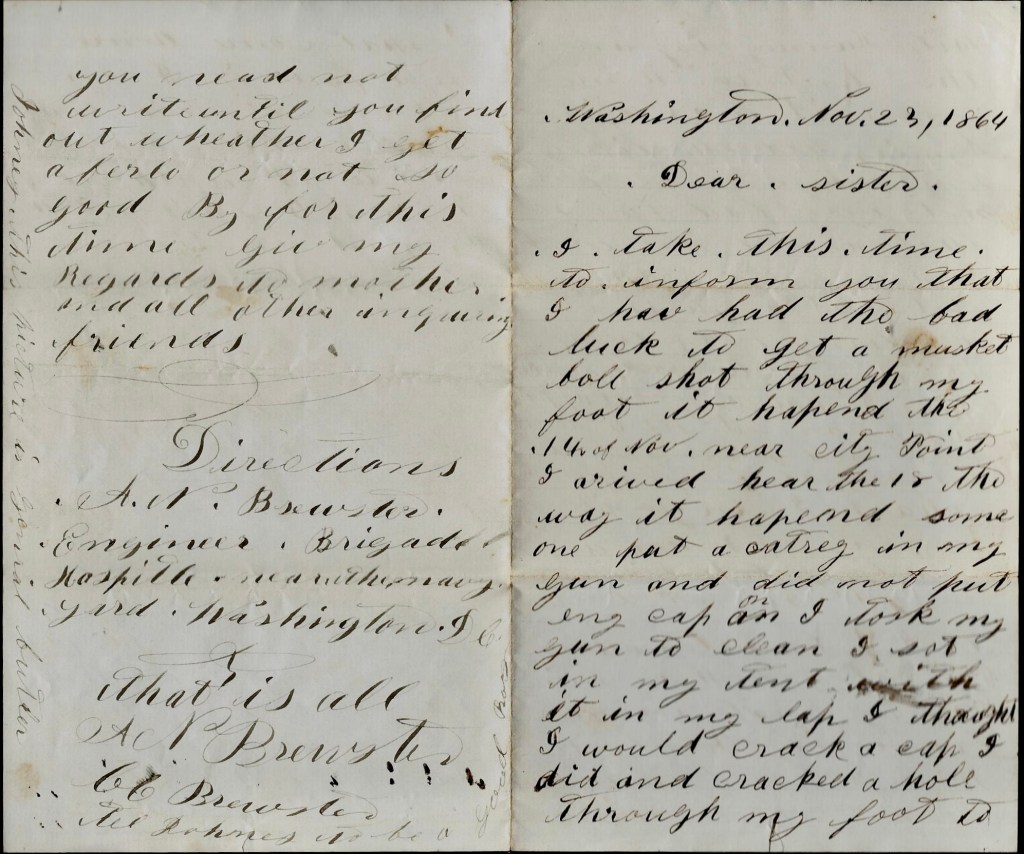 Washington. Nov. 23, 1864
. Dear . sister .
. I . take . this . time .
to . inform you that
I hav had the bad
luck to get a musket
boll shot through my
foot it hapend the
14 of Nov. near city Point
I arived hear the 18 the
way it hapend some
one put a catreg in my
gun and did not put
eng cap on an I took my
gun to clean I sot
in my tent with
it in my lap I thought
I would crack a cap I
did and cracked a hole
through my foot to
you nead not
write until you find
out wheather I get
a ferlo or not so
good By for this
time giv my
Regards to mother
and all other inquiring
friends
Directions
. A. N. Brewster.
. Engineer . Brigade
Hospittle . near the navy .
yard . Washington. D C
that is all
A N Brewster
CC Brewster
tel Johney to be a
good boy
Johney this picture is General butler